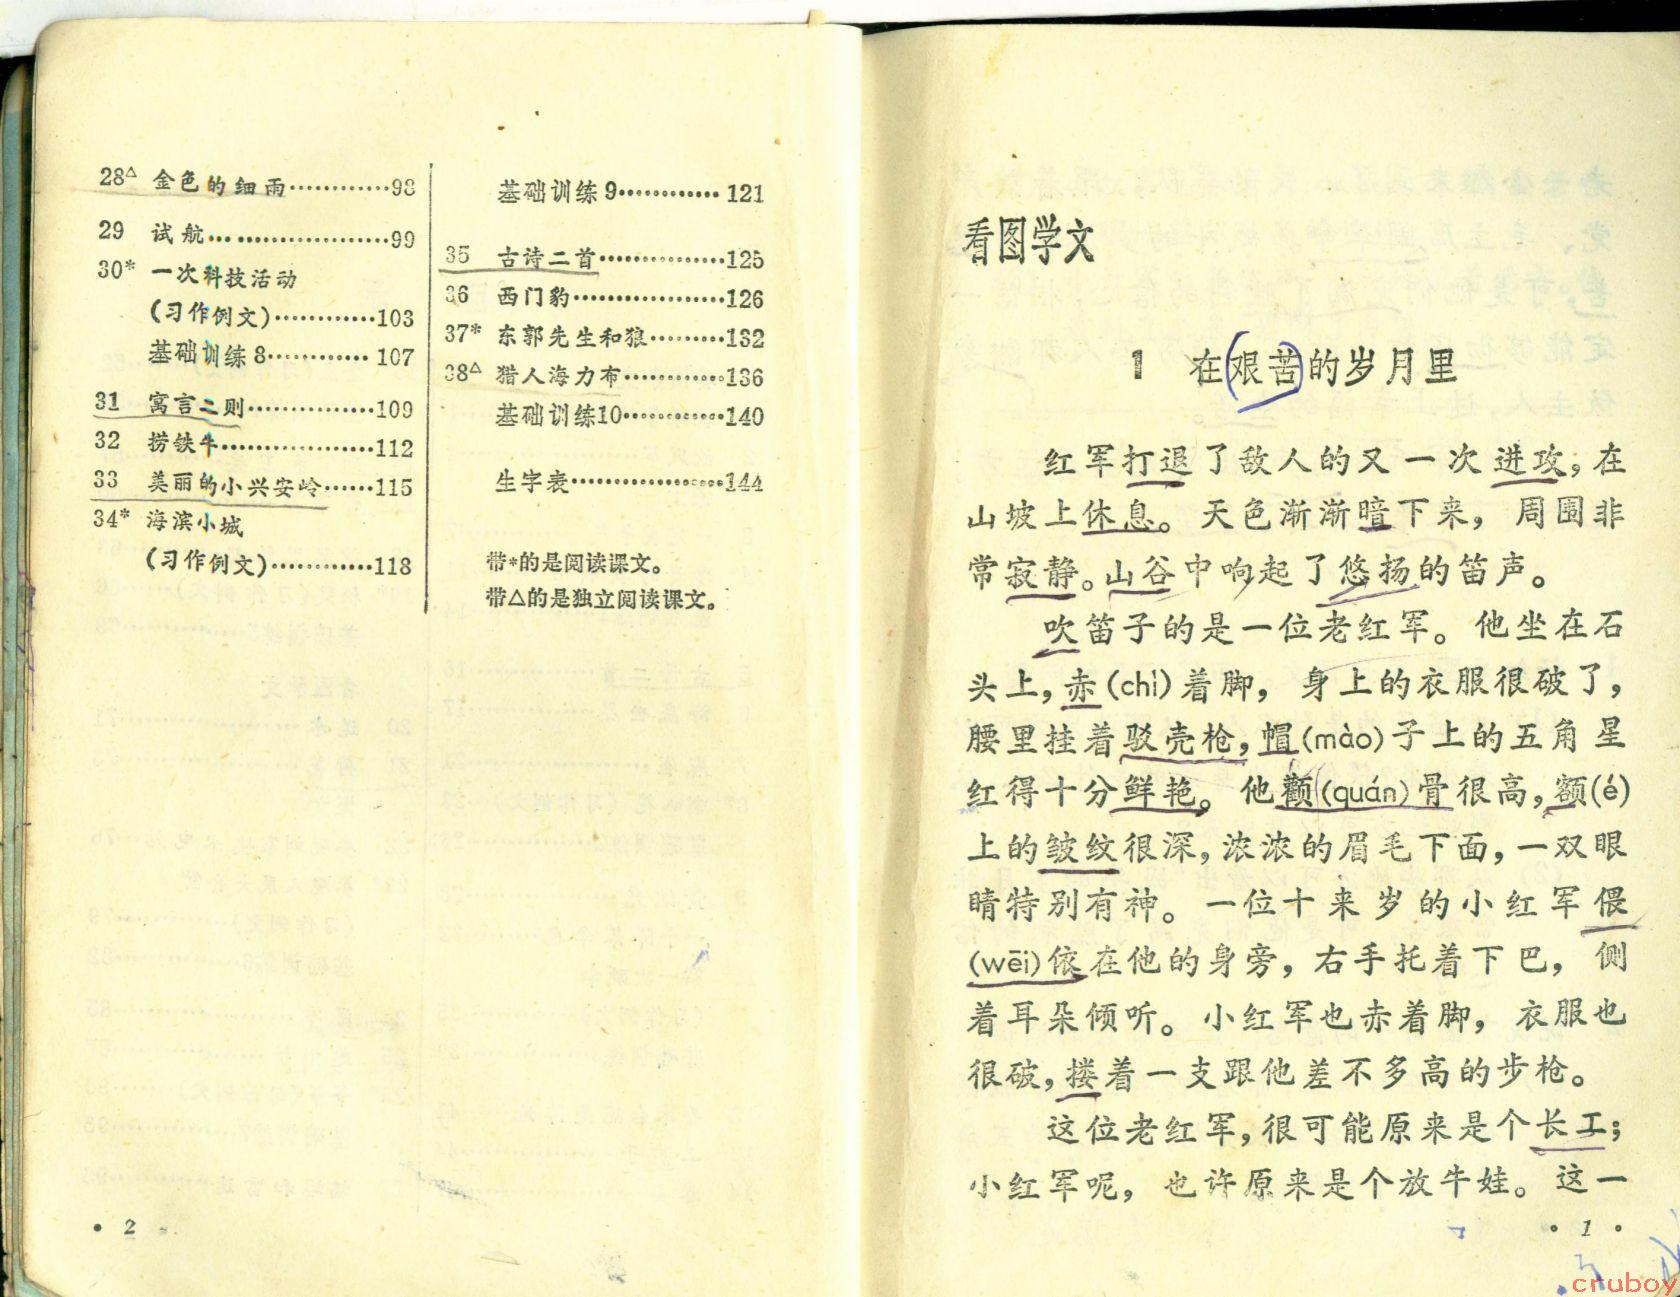 28△ 金色的细雨…………98
29 试航…………………99
30* 一次科技活动
(习作例文)…………103
基础训练8………… 107
31 寓言二则……………109
32 捞铁牛………………112
33 美丽的小兴安岭……115
34* 海滨小城
(习作例文)…………118
基础训练9………… 121
35 古诗二首……………125
36 西门豹………………126
37* 东郭先生和狼………132
38△ 猎人海力布…………136
基础训练10…………140
生字表………………144
带*的是阅读课文。
带△的是独立阅读课文。
• 2
看图学文
1 在艰苦的岁月里
红军打退了敌人的又一次进攻,在
山坡上休息。天色渐渐暗下来，周围非
常寂静。山谷中响起了悠扬的笛声。
吹笛子的是一位老红军。他坐在石
头上,赤(chì)着脚，身上的衣服很破了，
腰里挂着驳壳枪,帽(mào)子上的五角星
红得十分鲜艳。他颧(quán)骨很高,额(é)
上的皱纹很深,浓浓的眉毛下面,一双眼
睛特别有神。一位十来岁的小红军偎
(wēi)依在他的身旁，右手托着下巴，侧
着耳朵倾听。小红军也赤着脚，衣服也
很破,搂着一支跟他差不多高的步枪。
这位老红军,很可能原来是个长工;
小红军呢，也许原来是个放牛娃。这一
• 1 •
cruboy